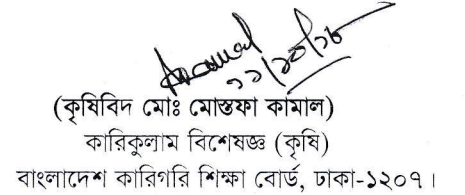 ১১/১০/১৮
(কৃষিবিদ মোঃ মোস্তফা কামাল)
কারিকুলাম বিশেষজ্ঞ (কৃষি)
বাংলাদেশ কারিগরি শিক্ষা বোর্ড, ঢাকা-১২০৭।